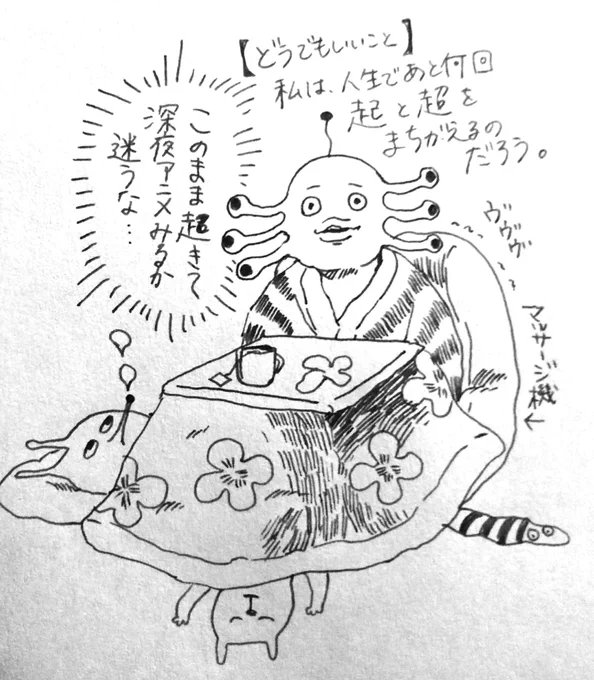 【どうでもいいこと】
私は、人生であと何回
起と超を
まちがえるの
だろう。
このまま超きて
深夜アニメみるか
迷うな…
ヴヴヴ
マッサージ機←